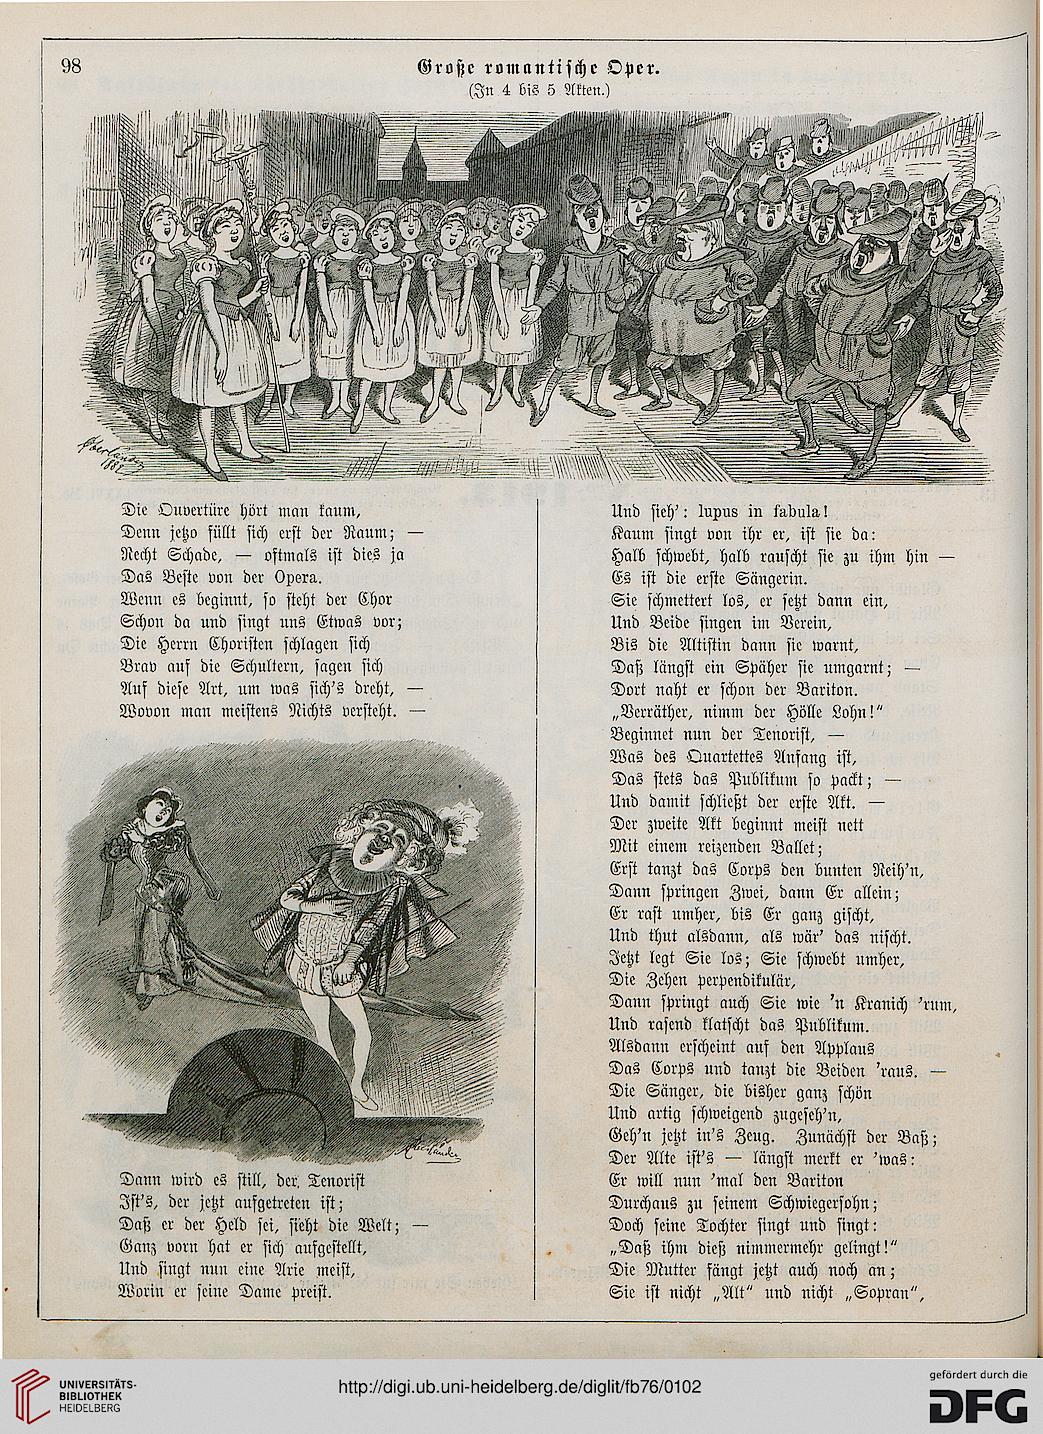 98
Große romantische Oper.
(In 4 bis 5 Akten.)
Die Ouvertüre hört man kaum,
Denn jetzo füllt sich erst der Raum; —
Recht Schade, — oftmals ist dies ja
Das Beste von der Opera.
Wenn es beginnt, so steht der Chor
Schon da und singt uns Etwas vor;
Die Herrn Choristen schlagen sich
Brav auf die Schultern, sagen sich
Auf diese Art, um was sich's dreht, —
Wovon man meistens Nichts versteht. —
Dann wird es still, der Tenorist
Ist's, der jetzt aufgetreten ist;
Daß er der Held sei, sieht die Welt; —
Ganz vorn hat er sich aufgestellt,
Und singt nun eine Arie meist,
Worin er seine Dame preist.
Und sieh': lupus in fabula!
Kaum singt von ihr er, ist sie da:
Halb schwebt, halb rauscht sie zu ihm hin —
Es ist die erste Sängerin.
Sie schmettert los, er setzt dann ein,
Und Beide singen im Verein,
Bis die Altistin dann sie warnt,
Daß längst ein Späher sie umgarnt; —
Dort naht er schon der Bariton.
„Verräther, nimm der Hölle Lohn!"
Beginnet nun der Tenorist, —
Was des Quartettes Anfang ist,
Das stets das Publikum so packt; —
Und damit schließt der erste Akt. —
Der zweite Akt beginnt meist nett
Mit einem reizenden Ballet;
Erst tanzt das Corps den bunten Reih'n,
Dann springen Zwei, dann Er allein;
Er rast umher, bis Er ganz gischt,
Und thut alsdann, als wär' das nischt.
Jetzt legt Sie los; Sie schwebt umher,
Die Zehen perpendikulär,
Dann springt auch Sie wie 'n Kranich 'rum,
Und rasend klatscht das Publikum.
Alsdann erscheint auf den Applaus
Das Corps und tanzt die Beiden 'raus. —
Die Sänger, die bisher ganz schön
Und artig schweigend zugeseh'n,
Geh'n jetzt in's Zeug. Zunächst der Baß;
Der Alte ist's — längst merkt er 'was:
Er will nun 'mal den Bariton
Durchaus zu seinem Schwiegersohn;
Doch seine Tochter singt und singt:
„Daß ihm dieß nimmermehr gelingt!"
Die Mutter fängt jetzt auch noch an;
Sie ist nicht „Alt" und nicht „Sopran",
UNIVERSITÄTS-
BIBLIOTHEK
HEIDELBERG
http://digi.ub.uni-heidelberg.de/diglit/fb76/0102
gefördert durch die
DFG